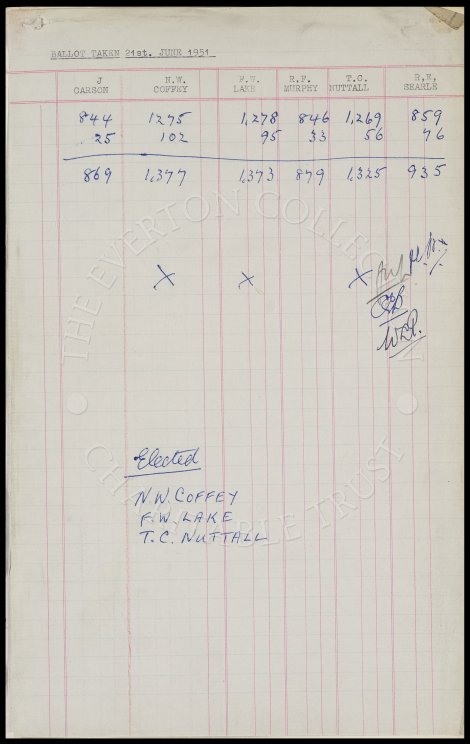 BALLOT TAKEN 21st. JUNE 1951
J CARSON N.W. COFFEY F.W. LAKE R.F. MURPHY T.C. NUTTALL R.E. SEARLE
844 1275 1,278 846 1,269 859
25 102 95 33 56 76
869 1,377 1,373 879 1,325 935
X X X
Elected
N.W. COFFEY
F.W. LAKE
T.C. NUTTALL
THE EVERTON COLLECTION
CHARITABLE TRUST